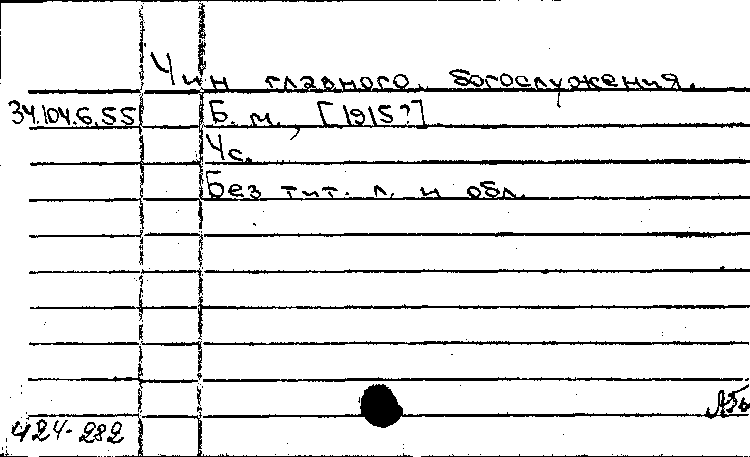 Чин главного богослужения.
34.104.6.55 Б. м., [1915?]
4с.
Без тит. л. и обл.
424-282